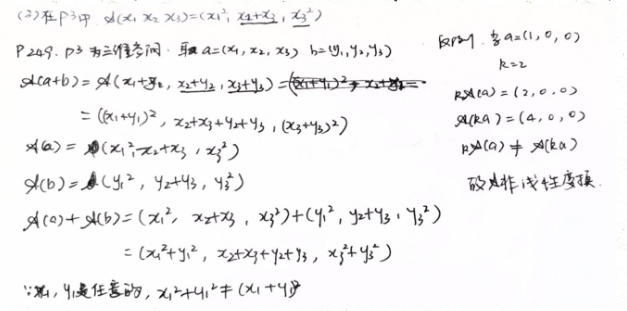 (2)在P³中 𝒜(x₁ x₂ x₃)=(x₁², x₂+x₃, x₃²)
P249. P³为三维空间. 取a=(x₁, x₂, x₃) b=(y₁, y₂, y₃)
𝒜(a+b)=𝒜(x₁+y₁, x₂+y₂, x₃+y₃)=
=((x₁+y₁)², x₂+x₃+y₂+y₃, (x₃+y₃)²)
𝒜(a)=(x₁², x₂+x₃, x₃²)
𝒜(b)=(y₁², y₂+y₃, y₃²)
𝒜(a)+𝒜(b)=(x₁², x₂+x₃, x₃²)+(y₁², y₂+y₃, y₃²)
=(x₁²+y₁², x₂+x₃+y₂+y₃, x₃²+y₃²)
∵x₁, y₁是任意的, x₁²+y₁²≠(x₁+y₁)²
当a=(1, 0, 0)
k=2
k𝒜(a)=(2, 0, 0)
𝒜(ka)=(4, 0, 0)
k𝒜(a)≠𝒜(ka)
故𝒜非线性变换.